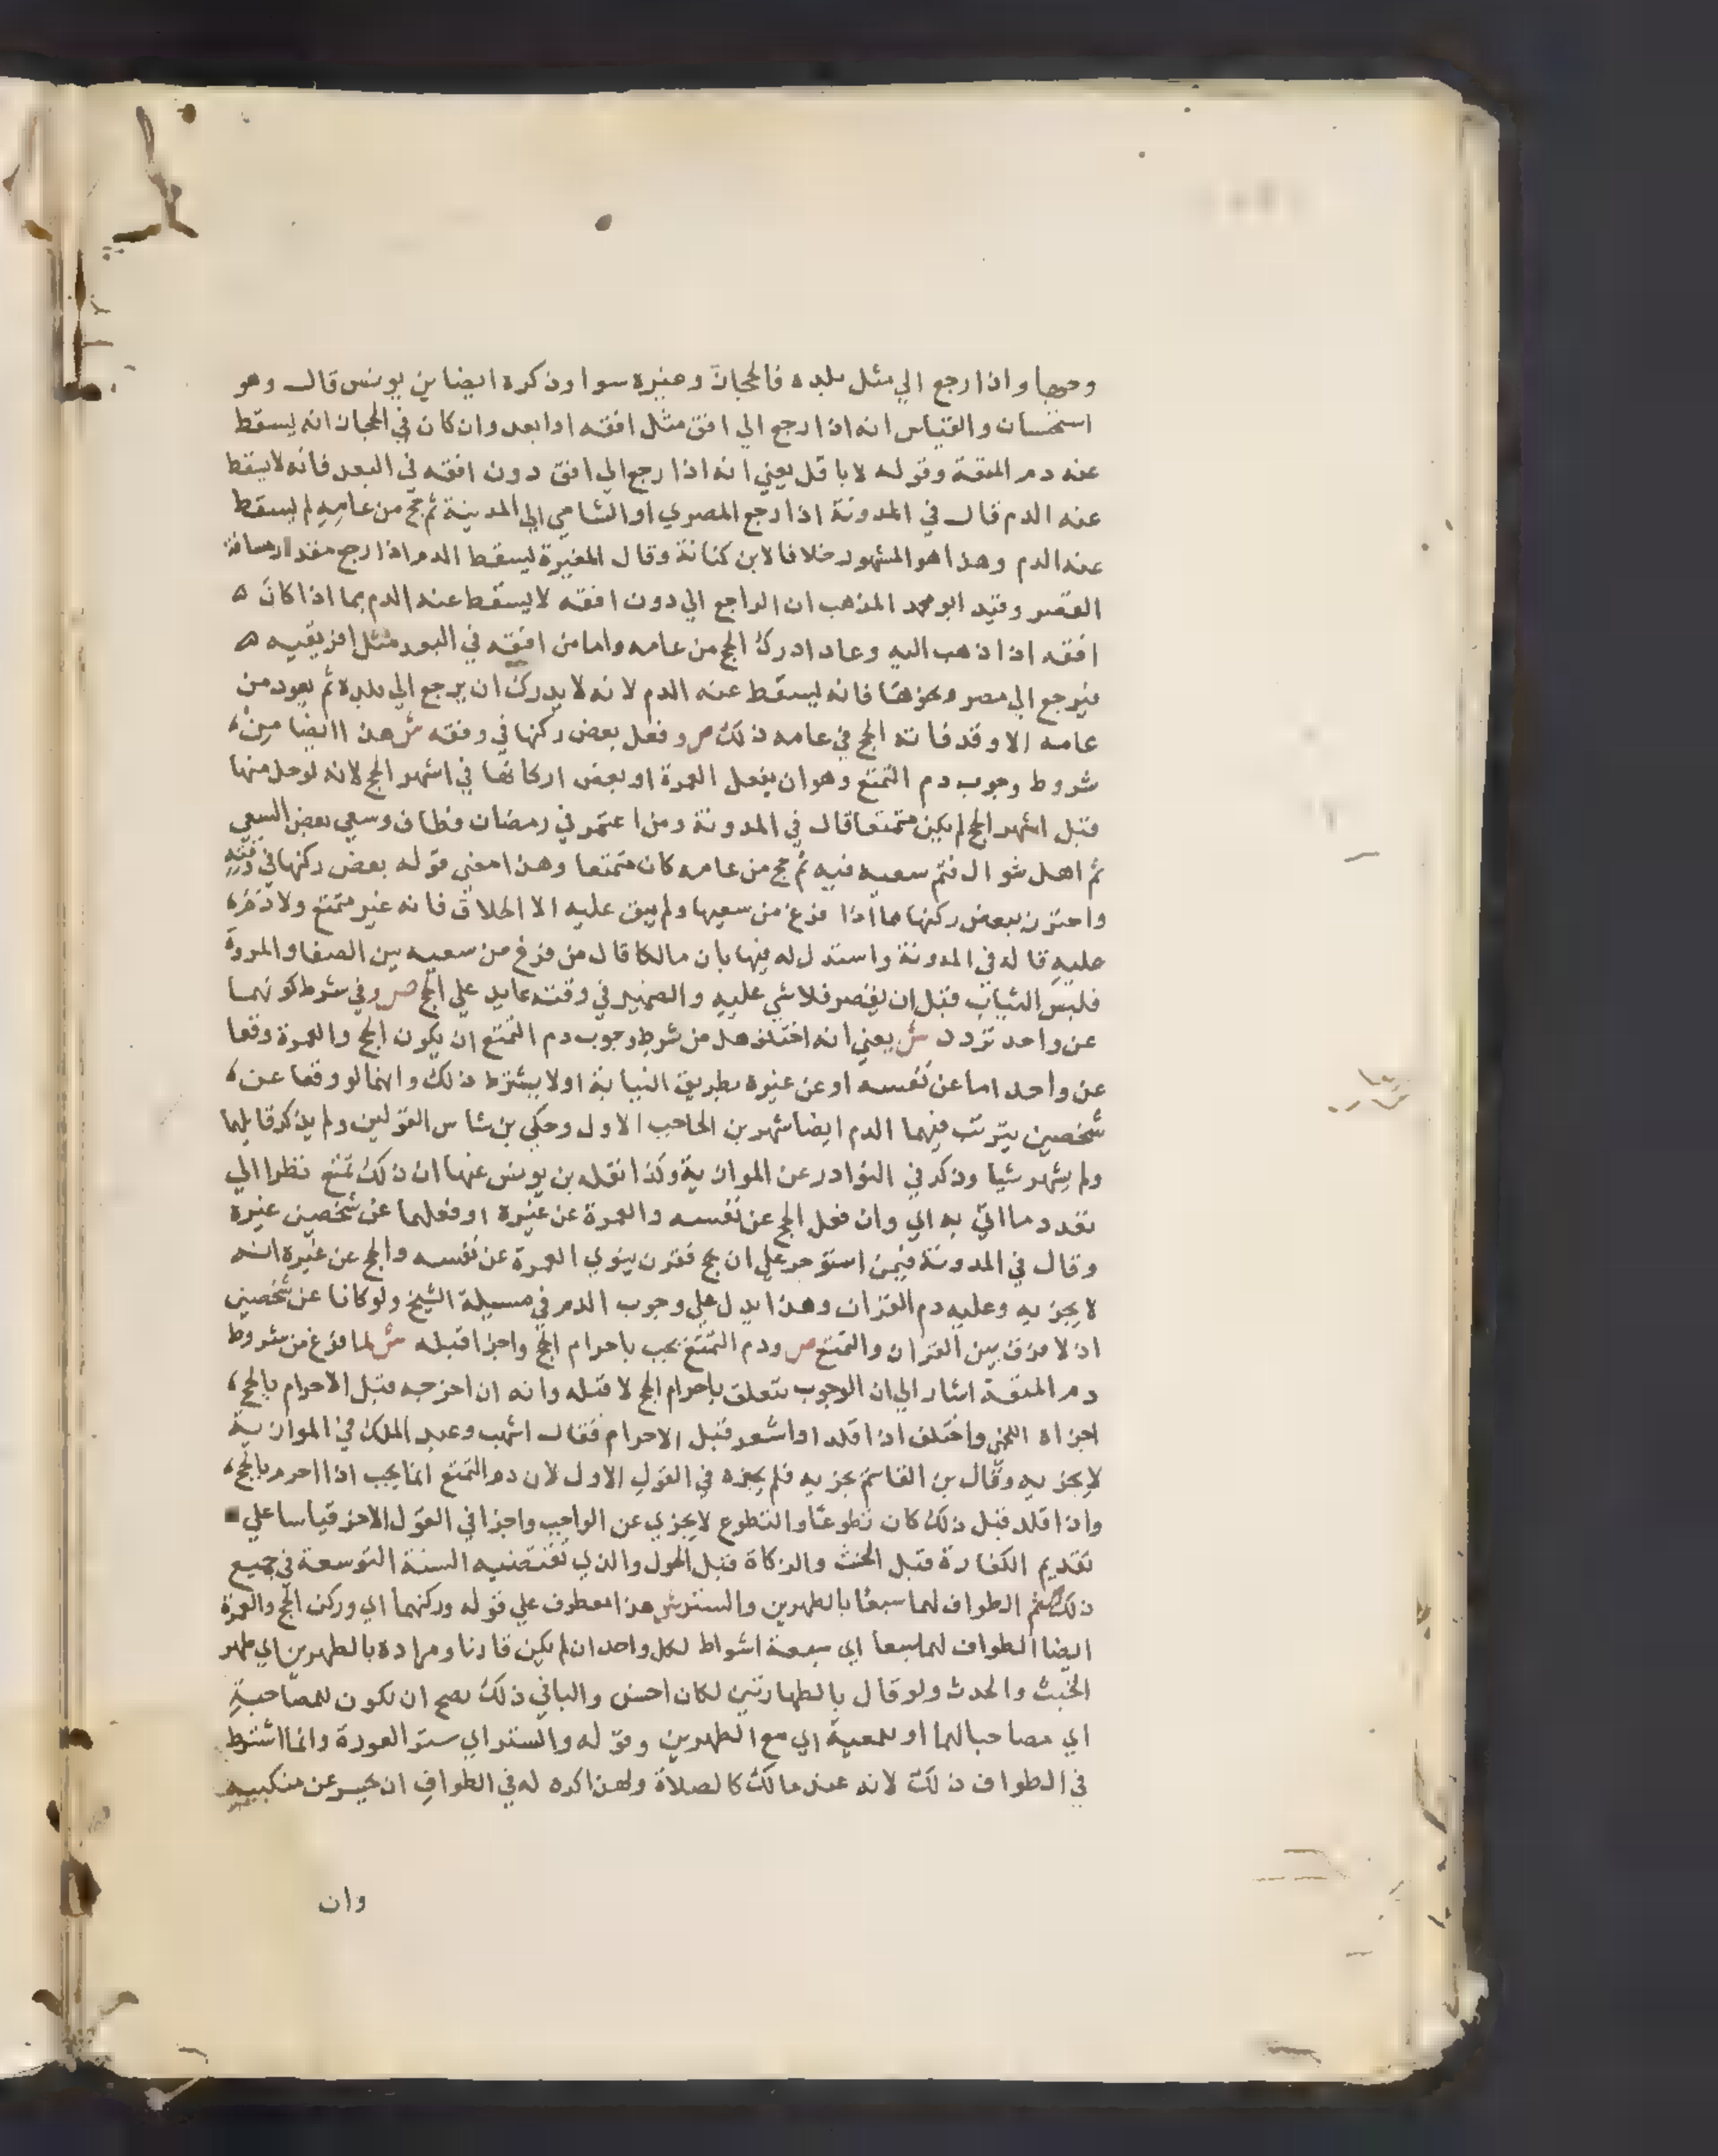 وحجها واذا رجع الي مثل بلده فالحجاز وغيره سوا وذكره ايضا بن يونس قال وهو
استحسان والقياس انه اذا رجع الي افق مثل افقه او ابعد وان كان في الحجاز انه يسقط
عنه دم المتعة وقوله لا باقل يعني انه اذا رجع الي افق دون افقه في البعد فانه لا يسقط
عنه الدم قال في المدونة اذا رجع المصري او الشامي الي المدينة ثم حج من عامه لم يسقط
عنه الدم وهذا هو المشهور خلافا لابن كنانة وقال المغيرة يسقط الدم اذا رجع مقدار مسافة
القصر وقيد ابو محمد المذهب ان الراجع الي دون افقه لا يسقط عنه الدم بما اذا كان ه
افقه اذا ذهب اليه وعاد ادرك الحج من عامه واما من افقه في البعد مثل افريقيه ه
فيرجع الي مصر ونحوها فانه يسقط عنه الدم لانه لا يدرك ان يرجع الي بلده ثم يعود من
عامه الا وقد فاته الحج في عامه ذلك ص وفعل بعض ركنها في وقته ش هذا ايضا من
شروط وجوب دم التمتع وهو ان يفعل العمرة او بعض اركانها في اشهر الحج لانه لو حل منها
قبل اشهر الحج لم يكن متمتعا قال في المدونة ومن اعتمر في رمضان فطاف وسعي بعض السعي
ثم اهل شوال فتم سعيه فيه ثم حج من عامه كان متمتعا وهذا معني قوله بعض ركنها في وقته
واحترز ببعض ركنها مما اذا فرغ من سعيها ولم يبق عليه الا الحلاق فانه غير متمتع ولا دم
عليه قاله في المدونة واستدل له فيها بان مالكا قال من فرغ من سعيه بين الصفا والمروة
فلبس الثياب قبل ان يقصر فلا شي عليه والضمير في وقته عايد علي الحج ص وفي شرط كونهما
عن واحد تردد ش يعني انه اختلف هل من شرط وجوب دم التمتع ان يكون الحج والعمرة وقعا
عن واحد اما عن نفسه او عن غيره بطريق النيابة او لا يشترط ذلك وانهما لو وقعا عن
شخصين يترتب فيهما الدم ايضا شهر بن الحاجب الاول وحكي بن شاس القولين ولم يذكر قايلهما
ولم يشهر شيا وذكر في النوادر عن الموازية وكذا نقله بن يونس عنها ان ذلك تمتع نظرا الي
تعدد ما اتي به اي وان فعل الحج عن نفسه والعمرة عن غيره او فعلهما عن شخصين غيره
وقال في المدونة فيمن استؤجر علي ان يحج فقرن ينوي العمرة عن نفسه والحج عن غيره انه
لا يجزيه وعليه دم القران وهذا يدل علي وجوب الدم في مسيلة الشيخ ولو كانا عن شخصين
اذ لا فرق بين القران والتمتع ص ودم التمتع يجب باحرام الحج واجزا قبله ش لما فرغ من شروط
دم المتعة اشار الي ان الوجوب يتعلق باحرام الحج لا قبله وانه ان اخرجه قبل الاحرام بالحج
اجزاه اللخمي واختلف اذا قلد او اشعر قبل الاحرام فقال اشهب وعبد الملك في الموازية
لا يجزيه وقال بن القاسم يجزيه فلم يجزه في القول الاول لان دم التمتع انما يجب اذا احرم بالحج
واذا قلد قبل ذلك كان تطوعا والتطوع لا يجزي عن الواجب واجزا في القول الاخر قياسا علي
تقديم الكفارة قبل الحنث والزكاة قبل الحول والذي تقتضيه السنة التوسعة في جميع
ذلك ص ثم الطواف لهما سبعا بالطهرين والستر ش هذا معطوف علي قوله وركنهما اي وركن الحج والعمرة
ايضا الطواف لهما سبعا اي سبعة اشواط لكل واحد ان لم يكن قارنا ومراده بالطهرين اي طهر
الخبث والحدث ولو قال بالطهارتين لكان احسن والبا في ذلك يصح ان تكون للمصاحبة
اي مصاحبا لهما او للمعية اي مع الطهرين وقوله والستر اي ستر العورة وانما اشترط
في الطواف ذلك لانه عند مالك كالصلاة ولهذا كره له في الطواف ان يحسر عن منكبيه
وان